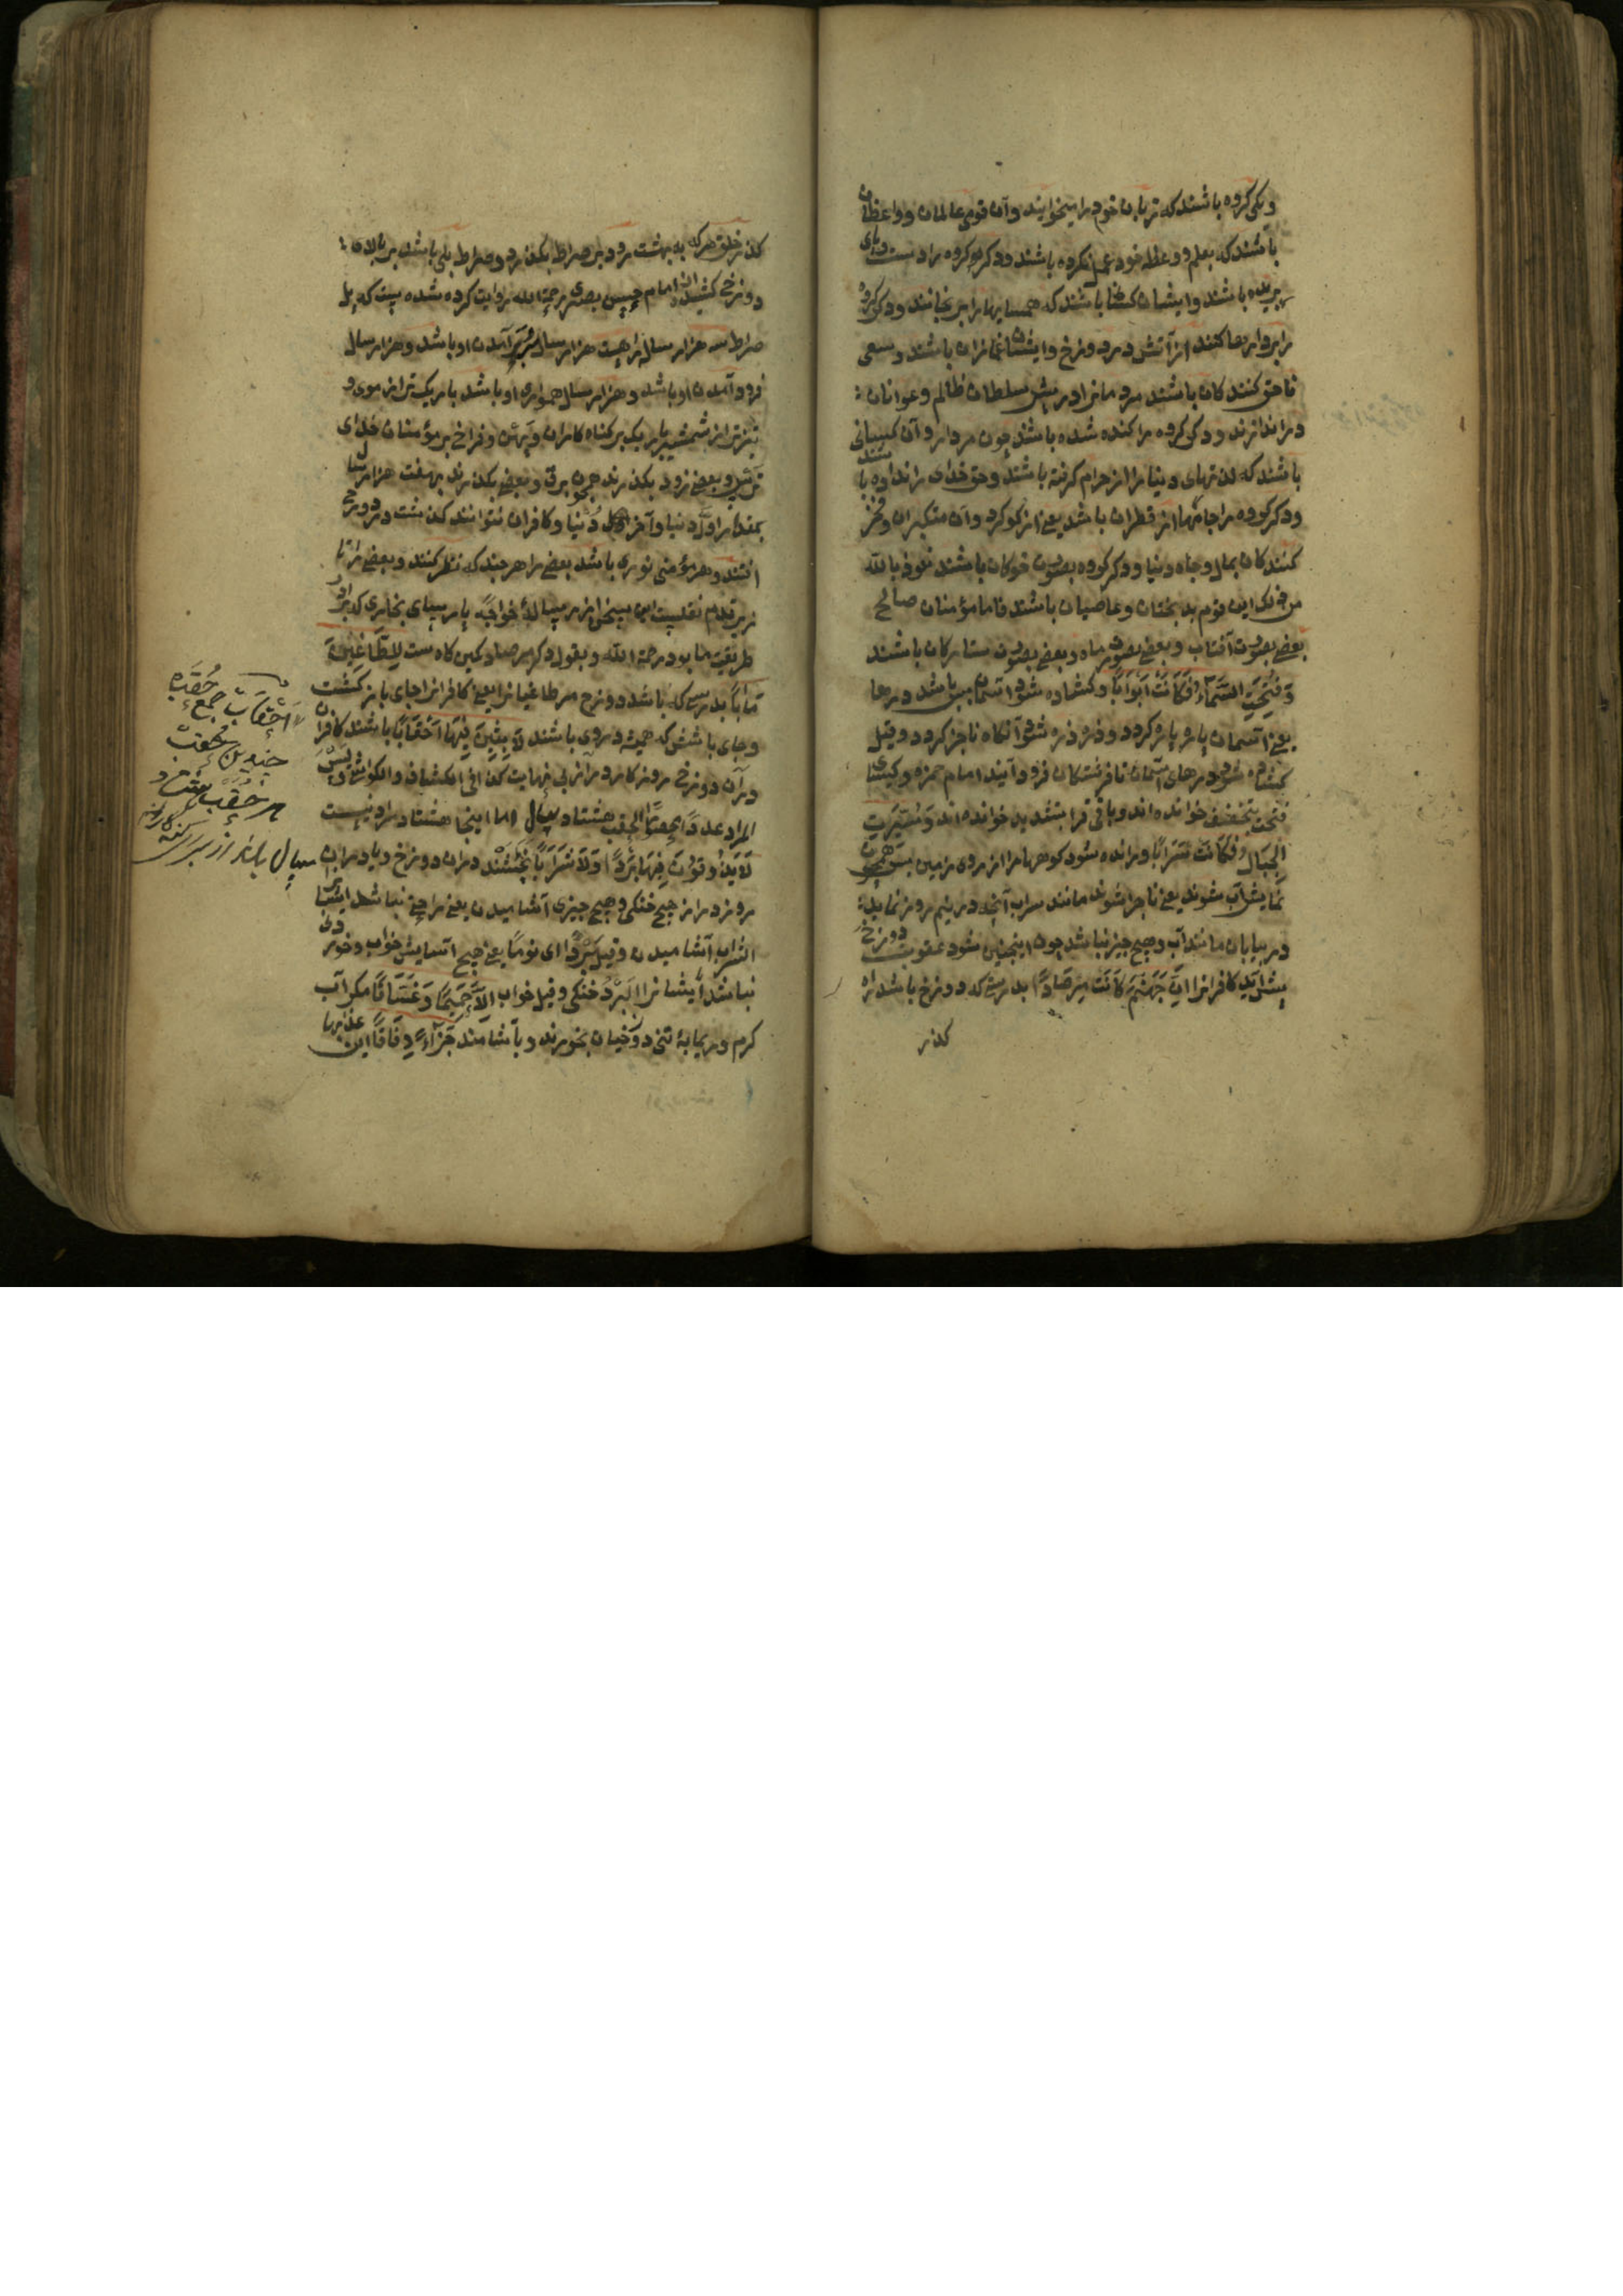 و یکی گروه باشند که زبان خود را میخوایند و آن قوم عالمان و واعظان
باشند که بعلم و وعظ خود عمل نکرده باشند و دکر کروه را دست و پای
بریده باشند و ایشان کسانی باشند که همسایها را برنجانند و دکر کروه
را بر دارها کنند از آتش در دوزخ و ایشان غمازان باشند و سعی
ناحق کنندکان باشند مردمانرا در پیش سلطان ظالم و عوانان
در اندازند و دکر کروه را کنده شده باشند چون مردار و آن کسانی
باشند که لذتهای دنیا را از حرام کرفته باشند و حق خدای را نداده باشند
و دکر کروه را جامها از قطران باشد یعنی از کوکرد و آن متکبران و فخر
کنندکان بمال و جاه دنیا و دکر کروه بصورت خوکان باشند نعوذ بالله
من ذلک این قوم بدبختان و عاصیان باشند فاما مؤمنان صالح
بعضی بصورت آفتاب و بعضی بصورت ماه و بعضی بصورت ستارکان باشند
وَفُتِحَتِ السَّمَاءُ فَكَانَتْ أَبْوَابًا و کشاده شود آسمان پس باشد درها
یعنی آسمان پاره پاره کردد و ذره ذره شود آنکاه ناچیز کردد و قیل
کشاده شود درهای آسمان تا فرشتکان فرود آیند امام حمزه و کسائی
فتحت بتخفیف خوانده اند و باقی قرا بتشدید خوانده اند وَسُيِّرَتِ
الْجِبَالُ فَكَانَتْ سَرَابًا و رانده شود کوهها را از روی زمین پس همچون
نمایش آب شوند یعنی ناچیز شوند مانند سراب آنچه در نیم روز نماید
در بیابان مانند آب و هیچ چیز نباشد چون اینچنین شود عقوبت دوزخ
پیش آید کافرانرا إِنَّ جَهَنَّمَ كَانَتْ مِرْصَادًا بدرستی که دوزخ باشد راه
کذر
کذر خلق هرکه به بهشت رود بر صراط بکذرد و صراط پلی باشد بر بالاء
دوزخ کشیده از امام حسن بصری رحمة الله روایت کرده شده است که پل
صراط سه هزار ساله راهست هزار سال بر آمدن او باشد و هزار سال
فرود آمدن او باشد و هزار سال همواری او باشد باریک تر از موی و
تیزتر از شمشیر باریک بر کناه کاران و پهن و فراخ بر مؤمنان خدای
ترس و بعضی زود بکذرند چون برق و بعضی بکذرند بهفت هزار سال
بمقدار اول دنیا و آخر دنیا و کافران نتوانند کذشت در دوزخ
افتند و هر مؤمنی نوری باشد بعضی را هر چند که نظر کنند و بعضی را تا
زیر قدم نقلست این سخن از رسالهٔ خواجه پارسای بخاری که برادر
طریقت ما بود رحمة الله و بقول دکر مرصاد کمین کاه ست لِلطَّاغِينَ
مَآبًا بدرستی که باشد دوزخ مر طاغیانرا یعنی کافرانرا جای باز کشت
و جای باشش که همیشه در وی باشند لَابِثِينَ فِيهَا أَحْقَابًا باشند کافران
در آن دوزخ روزکار دراز بی نهایت کذا فی الکشاف و الکواشی و لیس
المراد عددا یعنی الحقب هشتاد سال اما اینجا هشتاد مراد نیست
لَا يَذُوقُونَ فِيهَا بَرْدًا وَلَا شَرَابًا نچشند در آن دوزخ و یا در آن
روزکار از هیچ خنکی و هیچ چیزی آشامیدن یعنی راحتی نباشد ایشانرا
الشراب آشامیدن و قیل بَرْدًا ای نوما یعنی هیچ آسایش خواب و خوردنی
نباشد ایشانرا البرد خنکی و قیل خواب إِلَّا حَمِيمًا وَغَسَّاقًا مکر آب
کرم و ریمابهٔ تن دوزخیان بخورند و بیاشامند جَزَاءً وِفَاقًا این عذابها
احقاب جمع حقبه
چندین حقوبت
هر حقب هفتاد
سال